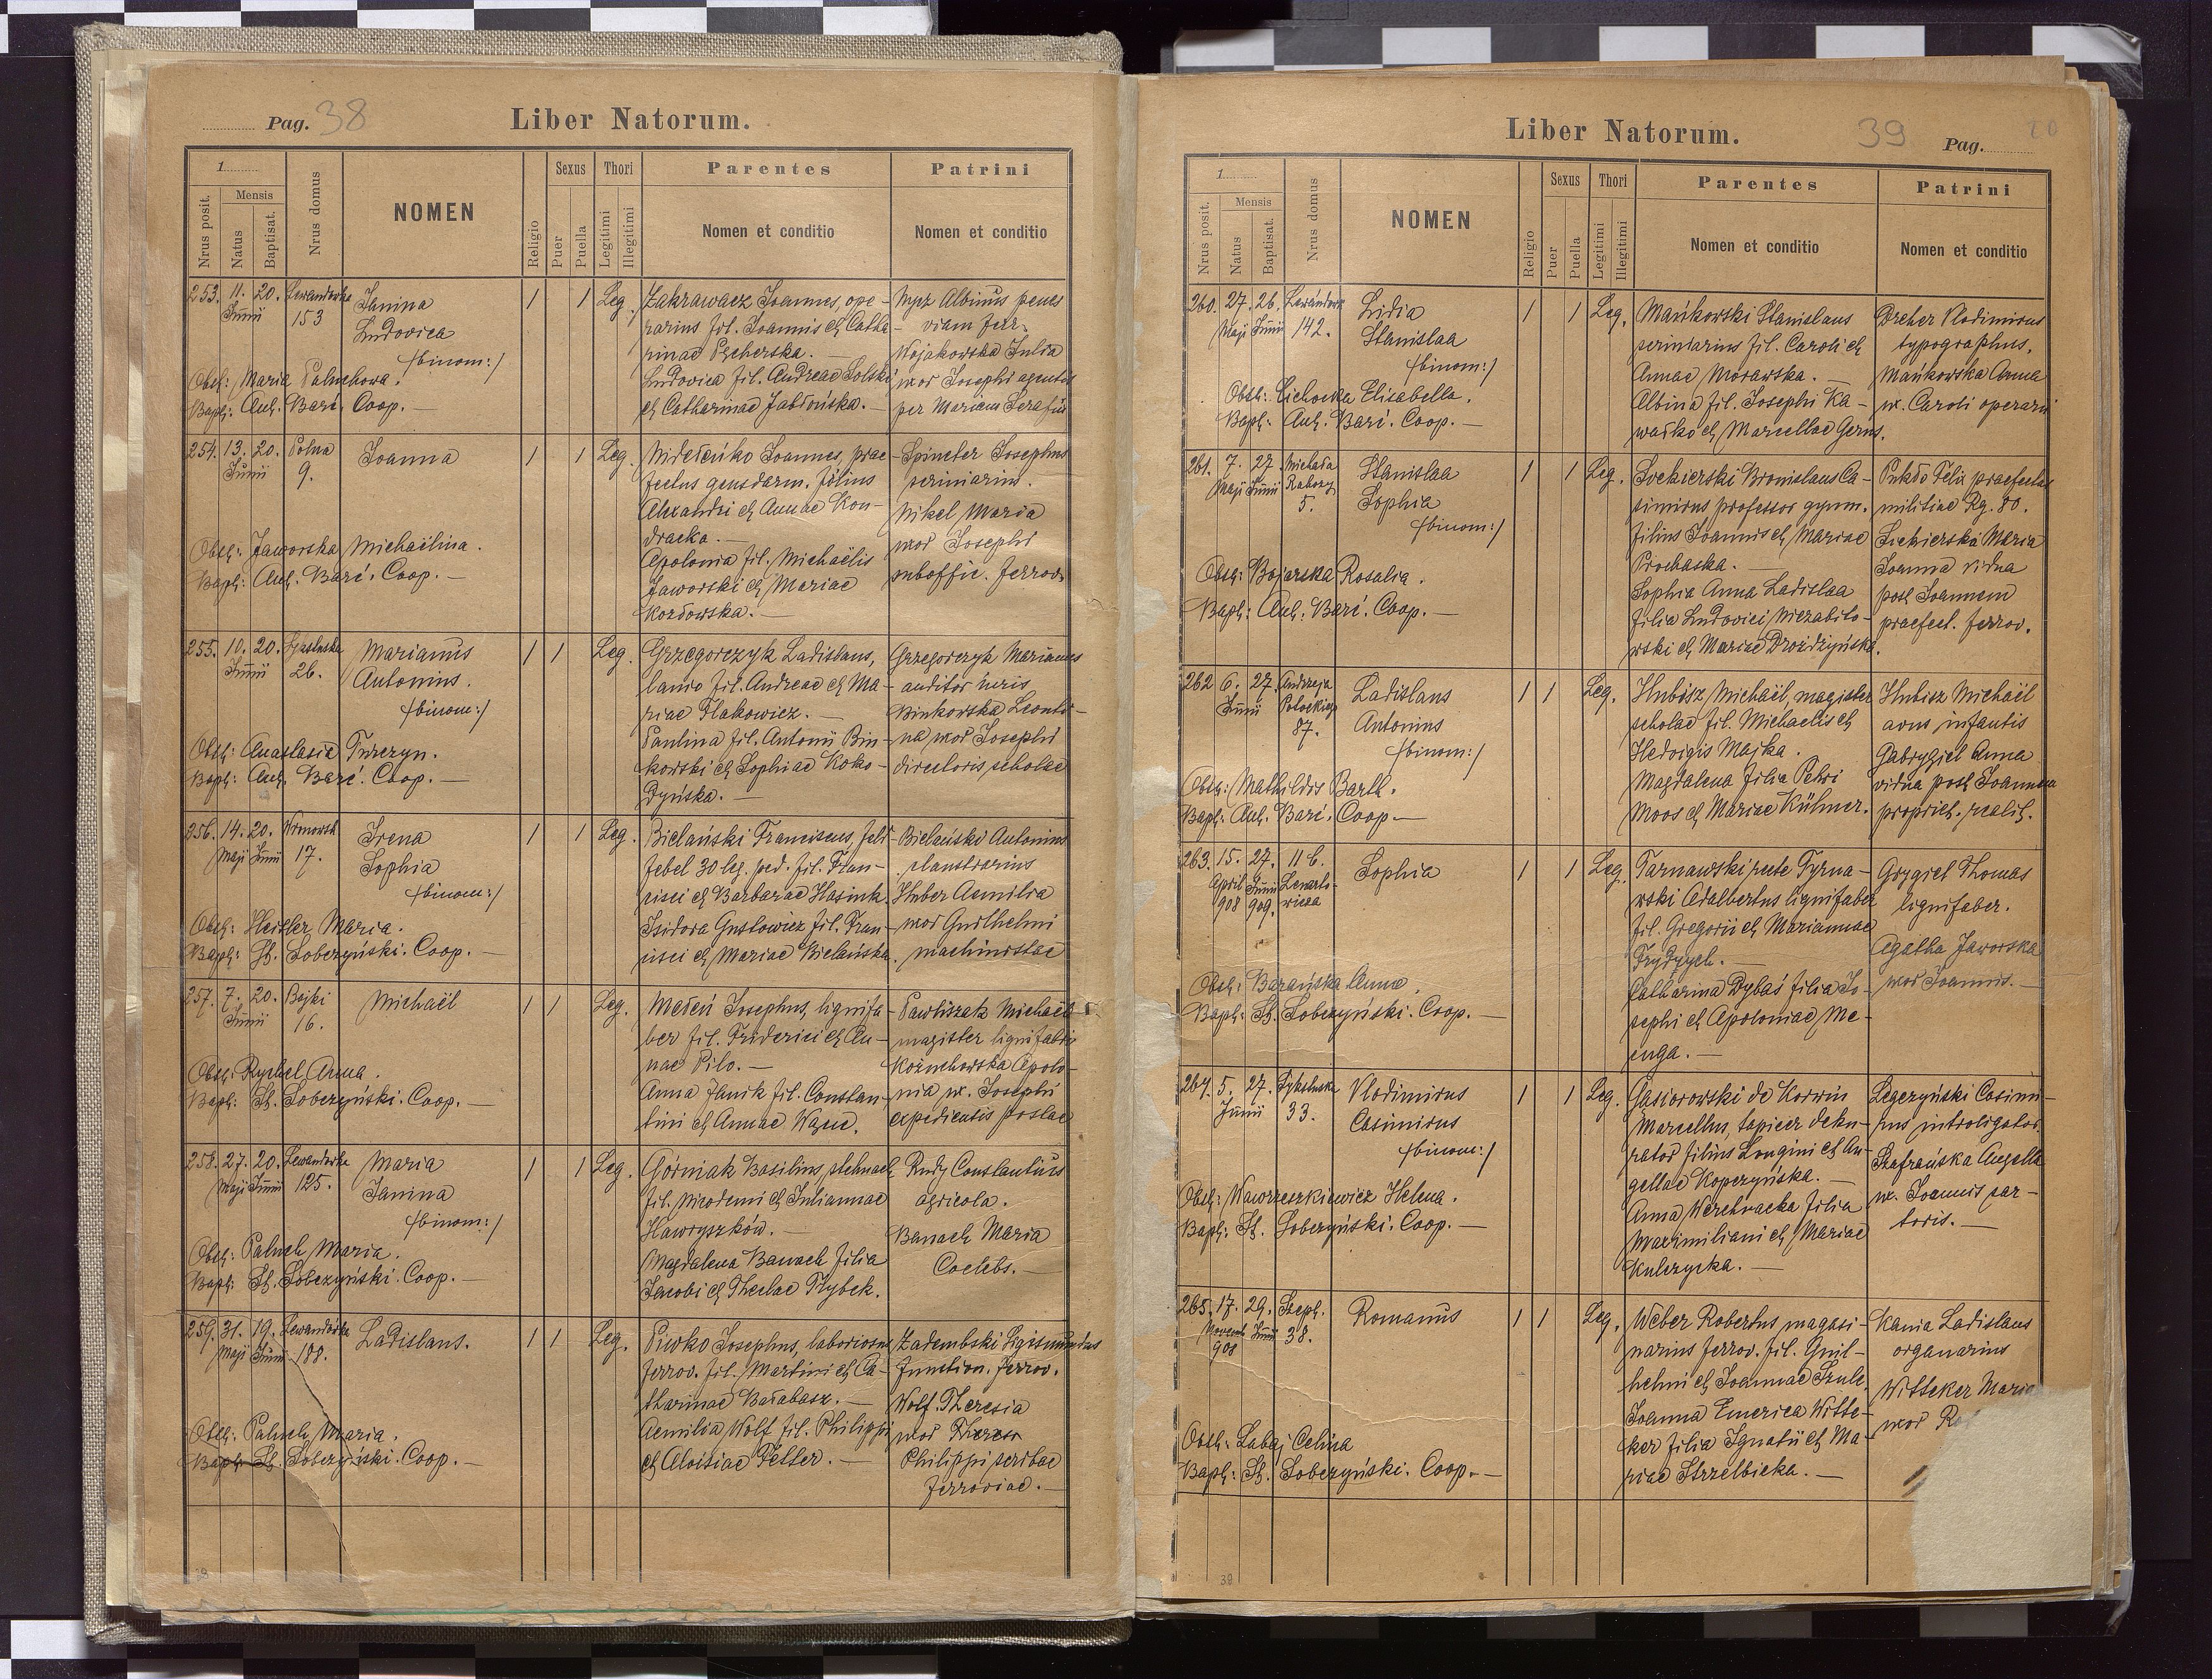 Pag. 38
Liber Natorum.
1
Nrus posit.
Mensis
Natus
Baptisat.
Nrus domus
NOMEN
Religio
Sexus
Puer
Puella
Thori
Legitimi
Illegitimi
Parentes
Nomen et conditio
Patrini
Nomen et conditio
253. 11. Junii 20. Lewandówka 153
Janina
Ludovica
/binom:/
Obst: Maria Paluchowa.
Bapt: Ant. Barć. Coop. —
1 1 Leg.
Zakrawacz Joannes, ope-
rarius fil. Joannis et Catha-
rinae Pscherska. —
Ludovica fil. Andreae Solski
et Catharinae Jabłońska. —
Albinus penes
viam ferr.
Wojakowska Julia
uxor Josephi agentis
per Mariam Serafin
254. 13. Junii 20. Polna 9.
Joanna
Obst: Jaworska Michaëlina.
Bapt: Ant. Barć. Coop. —
1 1 Leg.
Joannes, prae-
fectus gensdarm. filius
Alexandri et Annae Kon-
dracka. —
Apolonia fil. Michaëlis
Jaworski et Mariae
Kozłowska. —
Spineter Josephus
Nikel Maria
uxor Josephi
suboffic. ferrov.
255. 10. Junii 20. 26.
Marianus
Antonius.
/binom:/
Obst: Anastasia Turczyn.
Bapt: Ant. Barć. Coop. —
1 1 Leg.
Grzegorczyk Ladislaus,
lanio fil. Andreae et Ma-
riae Flakowicz. —
Paulina fil. Antonii Bin-
kowski et Sophiae Koko-
dyńska. —
Grzegorczyk Marianus
auditor iuris
Binkowska Leonti-
na uxor Josephi
directoris scholae
256. 14. Maji 20. Junii 17.
Irena
Sophia
/binom:/
Obst: Heisler Maria.
Bapt: St. Sobczyński. Coop. —
1 1 Leg.
Bielański Franciscus, feld-
febel 30 leg. ped. fil. Fran-
cisci et Barbarae Hasiuk
Isidora Gustowicz fil. Fran-
cisci et Mariae Bielańska.
Bielański Antonius
plaustrarius
Huber Aemilia
uxor Guilhelmi
machinistae
257. 7. Junii 20. Bajki 16.
Michaël
Obst: Rychel Anna.
Bapt: St. Sobczyński. Coop. —
1 1 Leg.
Josephus, lignifa-
ber fil. Friderici et An-
nae Pilo. —
Anna Janik fil. Constan-
tini et Annae
Pawliszak Michaël
magister lignifabri
Kożuchowska Apolo-
nia ux. Josephi
expedientis postae
258. 27. Maji 20. Junii Lewandówka 125.
Maria
Janina
/binom:/
Obst: Paluch Maria.
Bapt: St. Sobczyński. Coop. —
1 1 Leg.
Górniak Basilius,
fil. Nicodemi et Juliannae
Hawryszków. —
Magdalena Banach filia
Jacobi et Theclae Trybek.
Rudy Constantius
agricola.
Banach Maria
Coelebs. —
259. 31. Maji 19. Junii Lewandówka 188.
Ladislaus.
Obst: Paluch Maria.
Bapt: St. Sobczyński. Coop. —
1 1 Leg.
Piwko Josephus, laboriosus
ferrov. fil. Martini et Ca-
tharinae Bałabasz. —
Aemilia Wolf fil. Philippi
et Aloisiae Petter. —
Zadembski Sigismundus
function. ferrov.
Wolf Theresia
uxor
Philippi scribae
ferroviae. —
38
Liber Natorum.
39
Pag.
20
1
Nrus posit.
Mensis
Natus
Baptisat.
Nrus domus
NOMEN
Religio
Sexus
Puer
Puella
Thori
Legitimi
Illegitimi
Parentes
Nomen et conditio
Patrini
Nomen et conditio
260. 27. Maji 26. Junii Lewandówk 142.
Lidia
Stanislaa
/binom:/
Obst: Cichocka Elisabella.
Bapt: Ant. Barć. Coop. —
1 1 Leg.
Mańkowski Stanislaus
fil. Caroli et
Annae Morawska. —
Albina fil. Josephi Ka-
waśko et Marcellae Gerus.
Dreher Vlodimirus
typographus.
Mańkowska Anna
ux. Caroli operarii
261. 7. Maji 27. Junii Michała 5.
Stanislaa
Sophia
/binom:/
Obst: Bojarska Rosalia.
Bapt: Ant. Barć. Coop. —
1 1 Leg.
Siekierski Bronislaus Ca-
simirus professor gymn.
filius Joannis et Mariae
Prochaska. —
Sophia Anna Ladislaa
filia Ludovici Niezabito-
wski et Mariae Drożdżyńska.
Felix praefectus
militiae Rg. 80.
Siekierska Maria
Joanna vidua
post Joannem
praefect. ferrov.
262 6. Junii 27. Andrzeja Potockiego 87.
Ladislaus
Antonius
/binom:/
Obst: Mathildis Barth.
Bapt: Ant. Barć. Coop. —
1 1 Leg.
Hubisz Michaël, magister
scholae fil. Michaelis et
Hedvigis Majka.
Magdalena filia Petri
Moos et Mariae Kühner.
Hubisz Michaël
avus infantis
Gabrygiel Anna
vidua post Joannem
propriet. realit.
263. 15. April 908 27. Junii 909. 11 b. Lenarto-
wicza
Sophia
Obst: Barańska Anna.
Bapt: St. Sobczyński. Coop. —
1 1 Leg.
Tarnawski recte Tyrna-
wski Adalbertus lignifaber
fil. Gregorii et Mariannae
Frydrych. —
Catharina Dybaś filia Jo-
sephi et Apoloniae Me-
enga. —
Grygiel Thomas
lignifaber.
Agatha Jaworska
uxor Joannis. —
264. 5. Junii 27. 33.
Vlodimirus
Casimirus
/binom:/
Obst: Wawrzeszkiewicz Helena.
Bapt: St. Sobczyński. Coop. —
1 1 Leg.
Gąsiorowski de Korwin
Marcellus, tapicer deku-
rator filius Longini et An-
gellae Kopczyńska. —
Anna Werchracka filia
Maximiliani et Mariae
Kulczycka. —
Legczyński Casimi-
rus introligator.
Szafrańska Angella
ux. Joannis sar-
toris. —
265. 17. Novemb 908 29. Junii Szept. 38.
Romanus
Obst: Labaj Celina
Bapt: St. Sobczyński. Coop. —
1 1 Leg.
Weber Robertus magasi-
narius ferrov. fil. Guil-
helmi et Joannae Szulc.
Joanna Emerica Witte-
ker filia Ignatii et Ma-
riae Strzelbicka. —
Kania Ladislaus
organarius
Witteker Maria
uxor
39